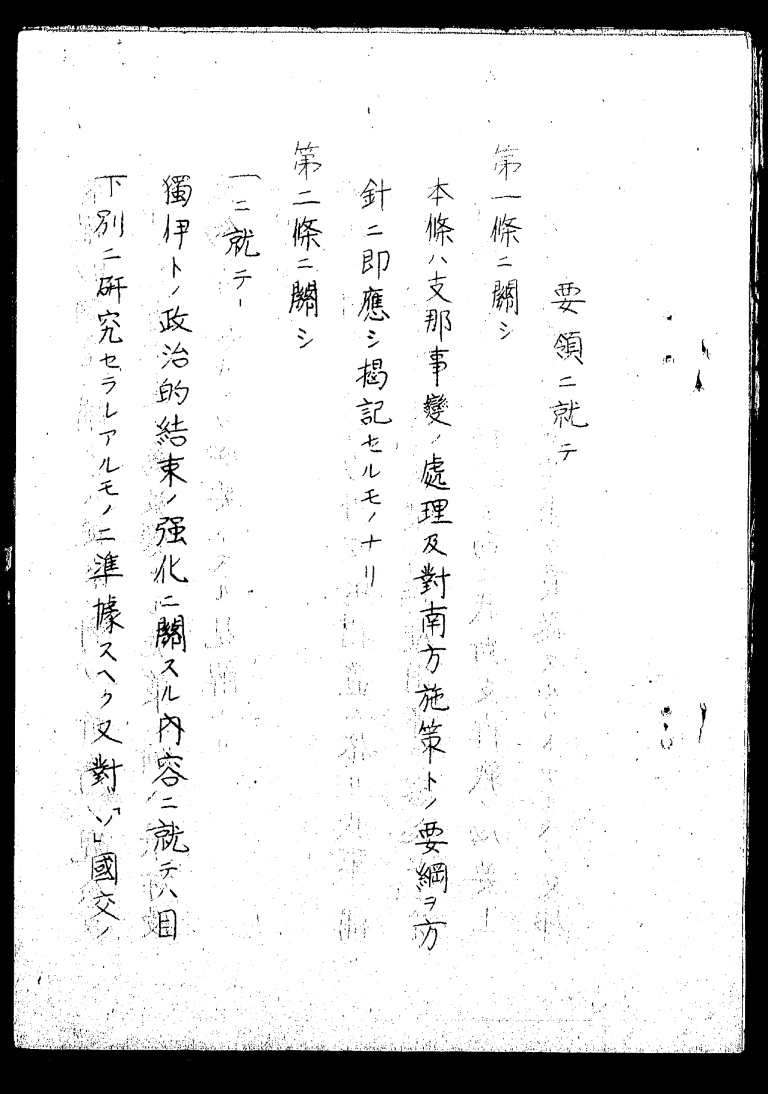 要領ニ就テ
第一條ニ關シ
本條ハ支那事變ノ處理及對南方施策トノ要綱ヲ方
針ニ即應シ揭記セルモノナリ
第二條ニ關シ
一ニ就テ
獨伊トノ政治的結束ノ强化ニ關スル內容ニ就テハ目
下別ニ硏究セラレアルモノニ準據スヘク又對「ソ」國交ノ